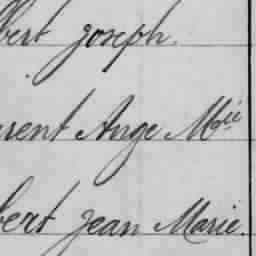 bert joseph
rent Ange Mie
bert jean Marie.